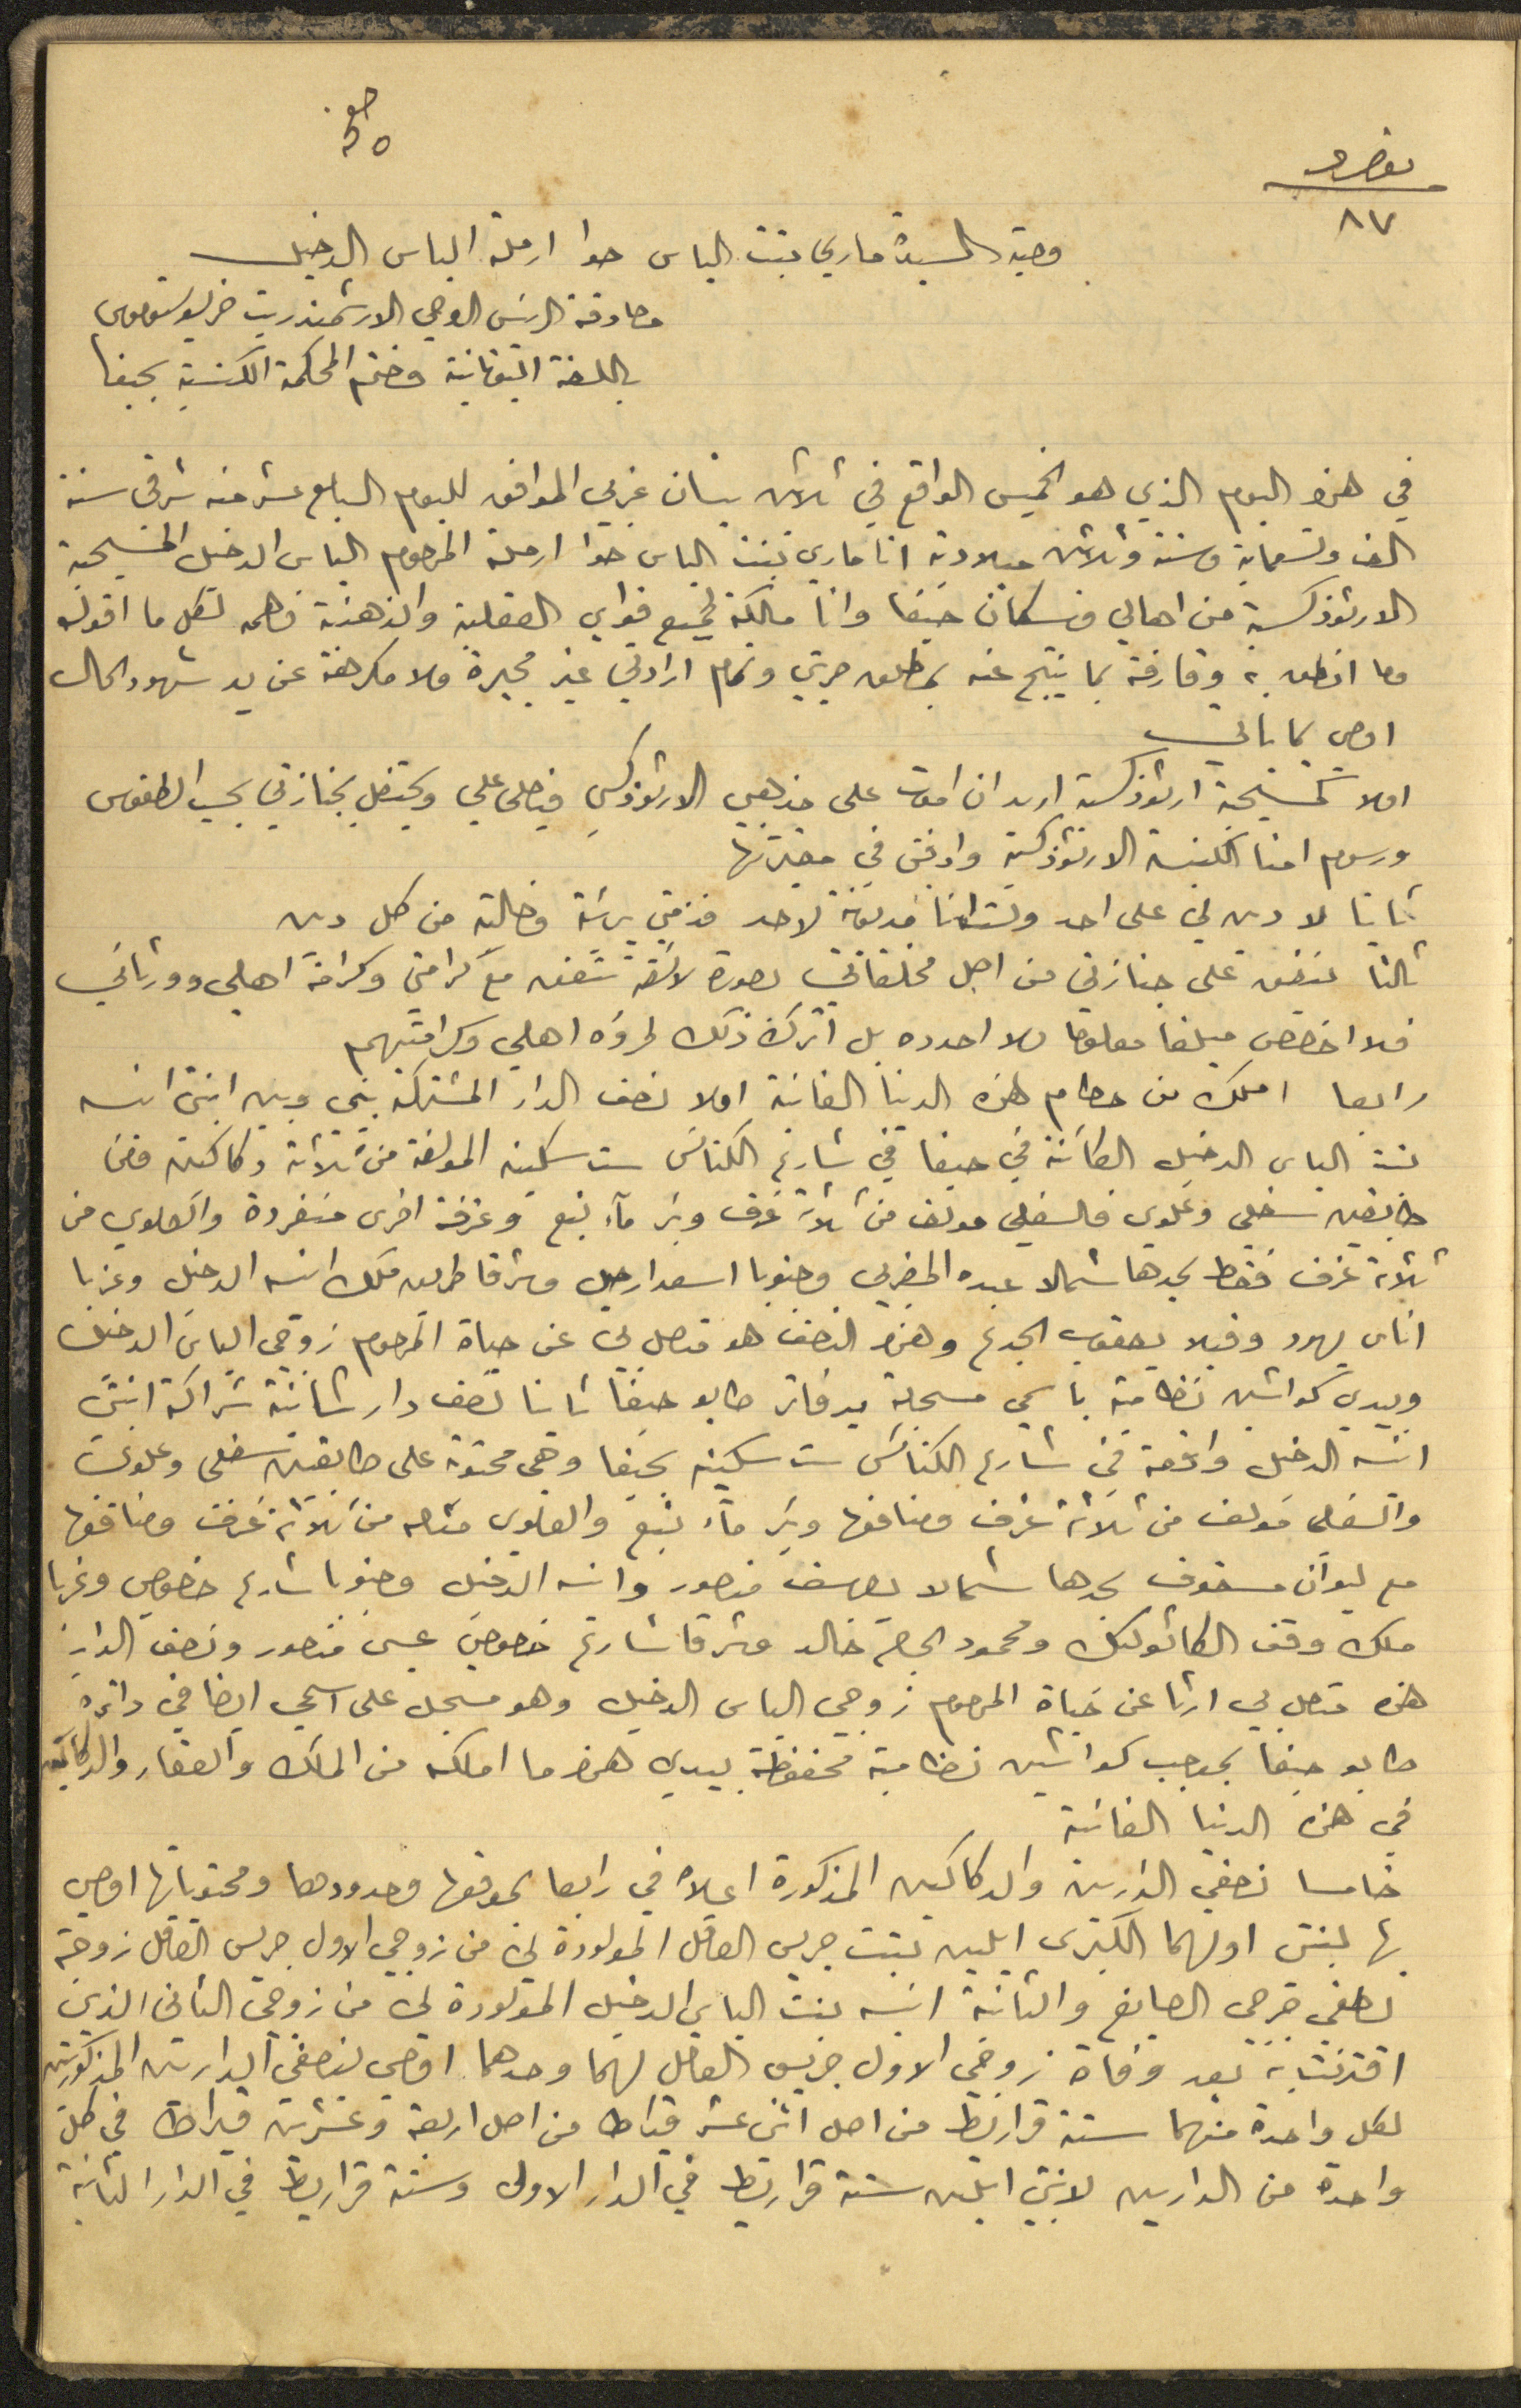 صفحة
٥٥
نمرو
٨٧
وصية السيدة ماري بنت الياس حوا ارملة الياس الدخيل
مصادقة الرئيس الروحي الارشمندريت خريسوستوموس
باللغة اليونانية وختم المحكمة الكنسية بحيفا
في هذا اليوم الذي هو الخميس الواقع في ثلاثين نيسان غربي الموافق لليوم السابع عشر منه شرقي سنة
الف وتسعماية وستة وثلاثين ميلادية انا ماري بنت الياس حوا ارملة المرحوم الياس الدخيل المسيحية
الارثوذكسية من اهالي وسكان حيفا وانا مالكة لجميع قواي العقلية والذهنية فاهمه لكل ما اقوله
وما انطق به وعارفة بما ينتج عنه بمطلق حريتي وتمام ارادتي غير مجبرة ولا مكرهة عن يد شهود الحال
اوصي بما ياتي
اولا كمسيحية ارثوذكسية اريد ان اموت على مذهبي الارثوذكسي فيصلى علي ويحتفل بجنازتي بحسب الطقوس
ورسوم امنا الكنيسة الارثوذكسية وادفن في مقبرتها
ثانيا لا دين لي على احد ولست انا مديونة لاحد فذمتي بريئة وخالية من كل دين
ثالثا ينفق على جنازتي من اصل مخلفاتي بصورة لائقة تتفق مع كرامتي وكرامة اهلي وورثائي
فلا اخصص مبلغا معلوما ولا احدده بل اترك ذلك لمروءة اهلي وكرامتهم
رابعا املك من حطام هذه الدنيا الفانية اولا نصف الدار المشتركة بيني وبين ابنتي انيسه
بنت الياس الدخيل الكائنة في حيفا في شارع الكنائس ست سكينه المؤلفة من ثلاثة دكاكين ومن
طابقين سفلي وعلوي فالسفلي مولف من ثلاث غرف وبئر ماء نبع وغرفة اخرى منفردة والعلوي من
ثلاثة غرف فقط يحدها شمالا عبده المغربي وجنوبا اسعد ارحيل وشرقا طريق ملك انيسه الدخيل وغربا
اناس يهود وقبلا يعقوب الجدع وهذا النصف هو متصل لي عن حياة المرحوم زوجي الياس الدخيل
وبيدي كواشين نظامية باسمي مسجلة بدفاتر طابو حيفا ثانيا نصف دار ثانية شراكة ابنتي
انيسه الدخيل واقعة في شارع الكنائس ست سكينه بحيفا وهي محتوية على طابقين سفلي وعلوي
والسفلي مولف من ثلاثة غرف ومنافعها وبئر ماء نبع والعلوي مثله من ثلاثة غرف ومنافعها
مع ليوان مسقوف يحدها شمالا يوسف منصور وانيسه الدخيل وجنوبا شارع خصوصي وغربا
ملك وقف الكاثوليك ومحمود الحاج خالد وشرقا شارع خصوصي عيسى منصور ونصف الدار
هذه متصل لي ارثا عن حياة المرحوم زوجي الياس الدخيل وهو مسجل على اسمي ايضا في دائرة
طابو حيفا بموجب كواشين نظامية محفوظة بيدي هذا ما املكه من الملك والعقار والدكاكين
في هذه الدنيا الفانية
خامسا نصفي الدارين والدكاكين المذكورة اعلاه في رابعا بموقعها وحدودها ومحتوياتها اوصي
بها لبنتي اولهما الكبرى ايلين بنت جريس العاقل المولودة لي من زوجي الاول جريس العاقل زوجة
لطفي قرحي الصايغ والثانية انيسه بنت الياس الدخيل المولودة لي من زوجي الثاني الذي
اقترنت به بعد وفاة زوجي الاول جريس العاقل لهما وحدهما اوصي لنصفي الدارين المذكورتين
لكل واحدة منهما ستة قراريط من اصل اثني عشر قيراط من اصل اربعة وعشرين قيراط في كل
واحدة من الدارين لابنتي ايلين ستة قراريط في الدار الاولى وستة قراريط في الدار الثانية